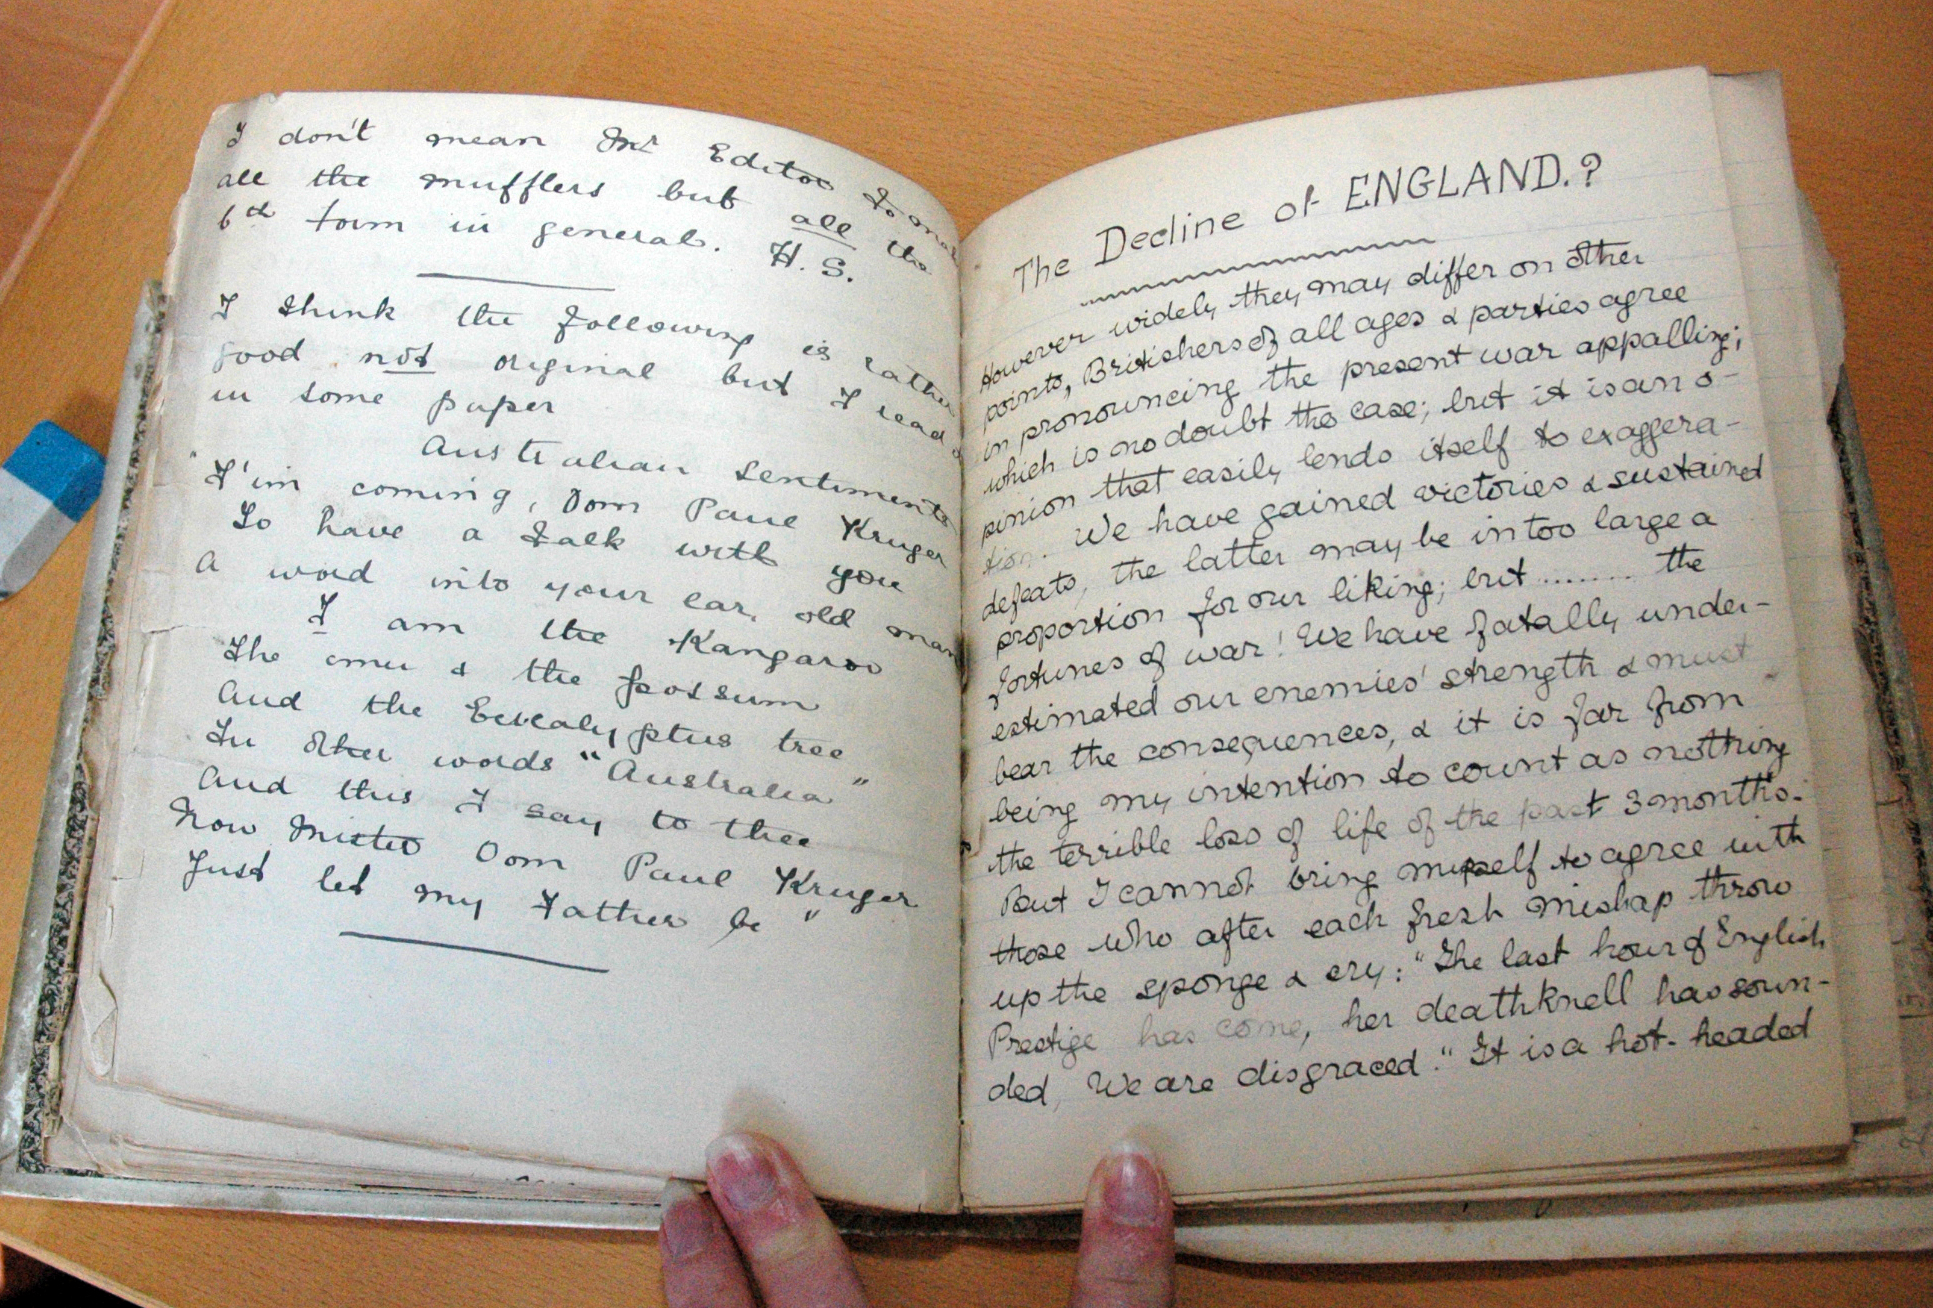 I don't mean Mr Editor to make
all the mufflers but all the
6th form in general. H. S.
I think the following is rather
good not original but I read
in some paper
Australian Sentiments
"I'm coming, Oom Paul Kruger
To have a talk with you
A word into your ear, old man
I am the Kangaroo
The emu & the possum
And the Eucalyptus tree
In other words "Australia"
And this I say to thee
Now Mister Oom Paul Kruger
Just let my Father be"
The Decline of ENGLAND.?
However widely they may differ on other
points, Britishers of all ages & parties agree
in pronouncing the present war appalling;
which is no doubt the case; but it is an o-
pinion that easily lends itself to exaggera-
tion. We have gained victories & sustained
defeats, the latter may be in too large a
proportion for our liking; but ........ the
fortunes of war! We have fatally under-
estimated our enemies' strength & must
bear the consequences, & it is far from
being my intention to count as nothing
the terrible loss of life of the past 3 months.
But I cannot bring myself to agree with
those who after each fresh mishap throw
up the sponge & cry: "The last hour of English
Prestige has come, her deathknell has soun-
ded, We are disgraced." It is a hot-headed